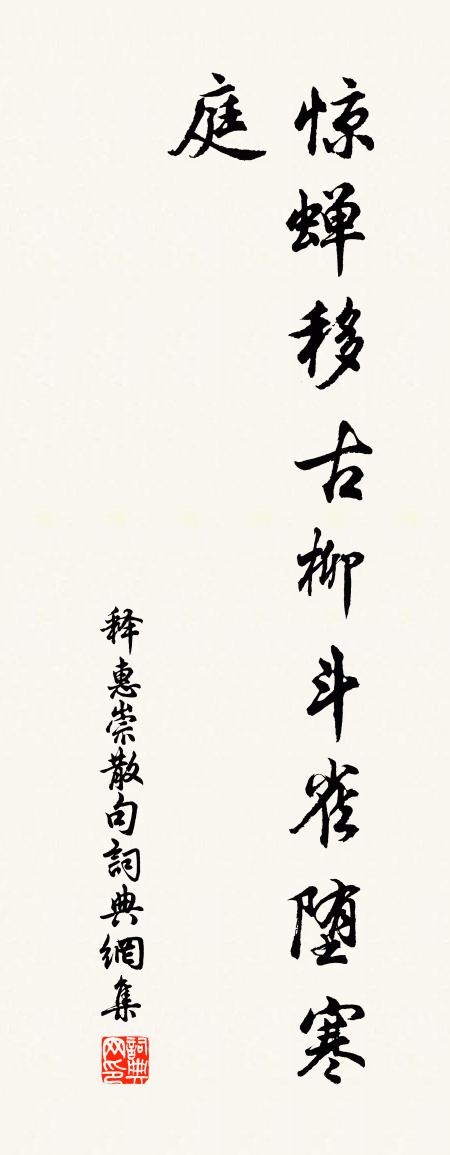 惊蝉移古柳斗雀堕寒
庭
释惠崇散句詞典網集
詞典
网印